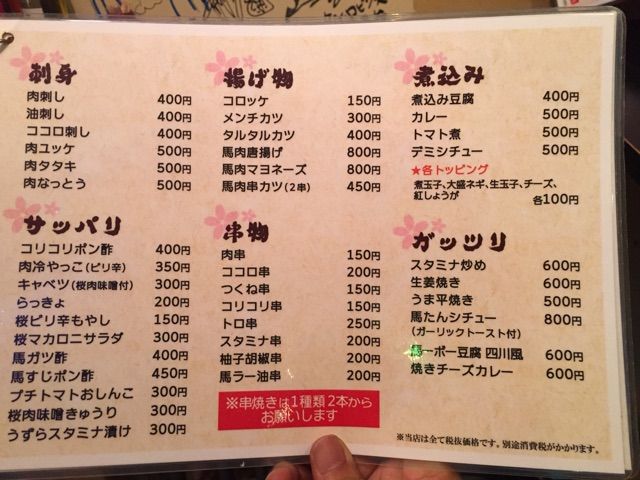 刺身
肉刺し 400円
油刺し 400円
ココロ刺し 400円
肉ユッケ 500円
肉タタキ 500円
肉なっとう 500円
サッパリ
コリコリポン酢 400円
肉冷やっこ(ピリ辛) 350円
キャベツ(桜肉味噌付) 300円
らっきょ 200円
桜ピリ辛もやし 150円
桜マカロニサラダ 300円
馬ガツ酢 400円
馬すじポン酢 450円
プチトマトおしんこ 300円
桜肉味噌きゅうり 300円
うずらスタミナ漬け 300円
揚げ物
コロッケ 150円
メンチカツ 300円
タルタルカツ 400円
馬肉唐揚げ 800円
馬肉マヨネーズ 800円
馬肉串カツ(2串) 450円
串物
肉串 150円
ココロ串 200円
つくね串 150円
コリコリ串 150円
トロ串 250円
スタミナ串 200円
柚子胡椒串 200円
馬ラー油串 200円
※串焼きは1種類2本から
お願いします
煮込み
煮込み豆腐 400円
カレー 500円
トマト煮 500円
デミシチュー 500円
★各トッピング
煮玉子、大盛ネギ、生玉子、チーズ、
紅しょうが 各100円
ガッツリ
スタミナ炒め 600円
生姜焼き 600円
うま平焼き 500円
馬たんシチュー 800円
(ガーリックトースト付)
馬ーボー豆腐 四川風 600円
焼きチーズカレー 600円
※当店は全て税抜価格です。別途消費税がかかります。